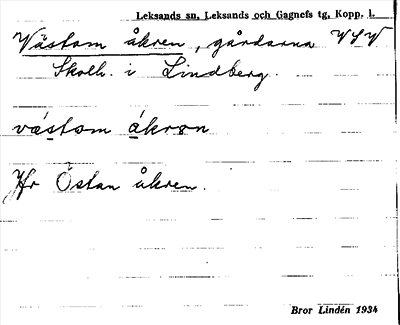 Leksands sn, Leksands och Gagnefs tg, Kopp. l.
Västom åkren, gårdarna VSV
Skolh. i Lindberg.
västom åkrøn
Jfr Östan åkren.
Bror Lindén 1934